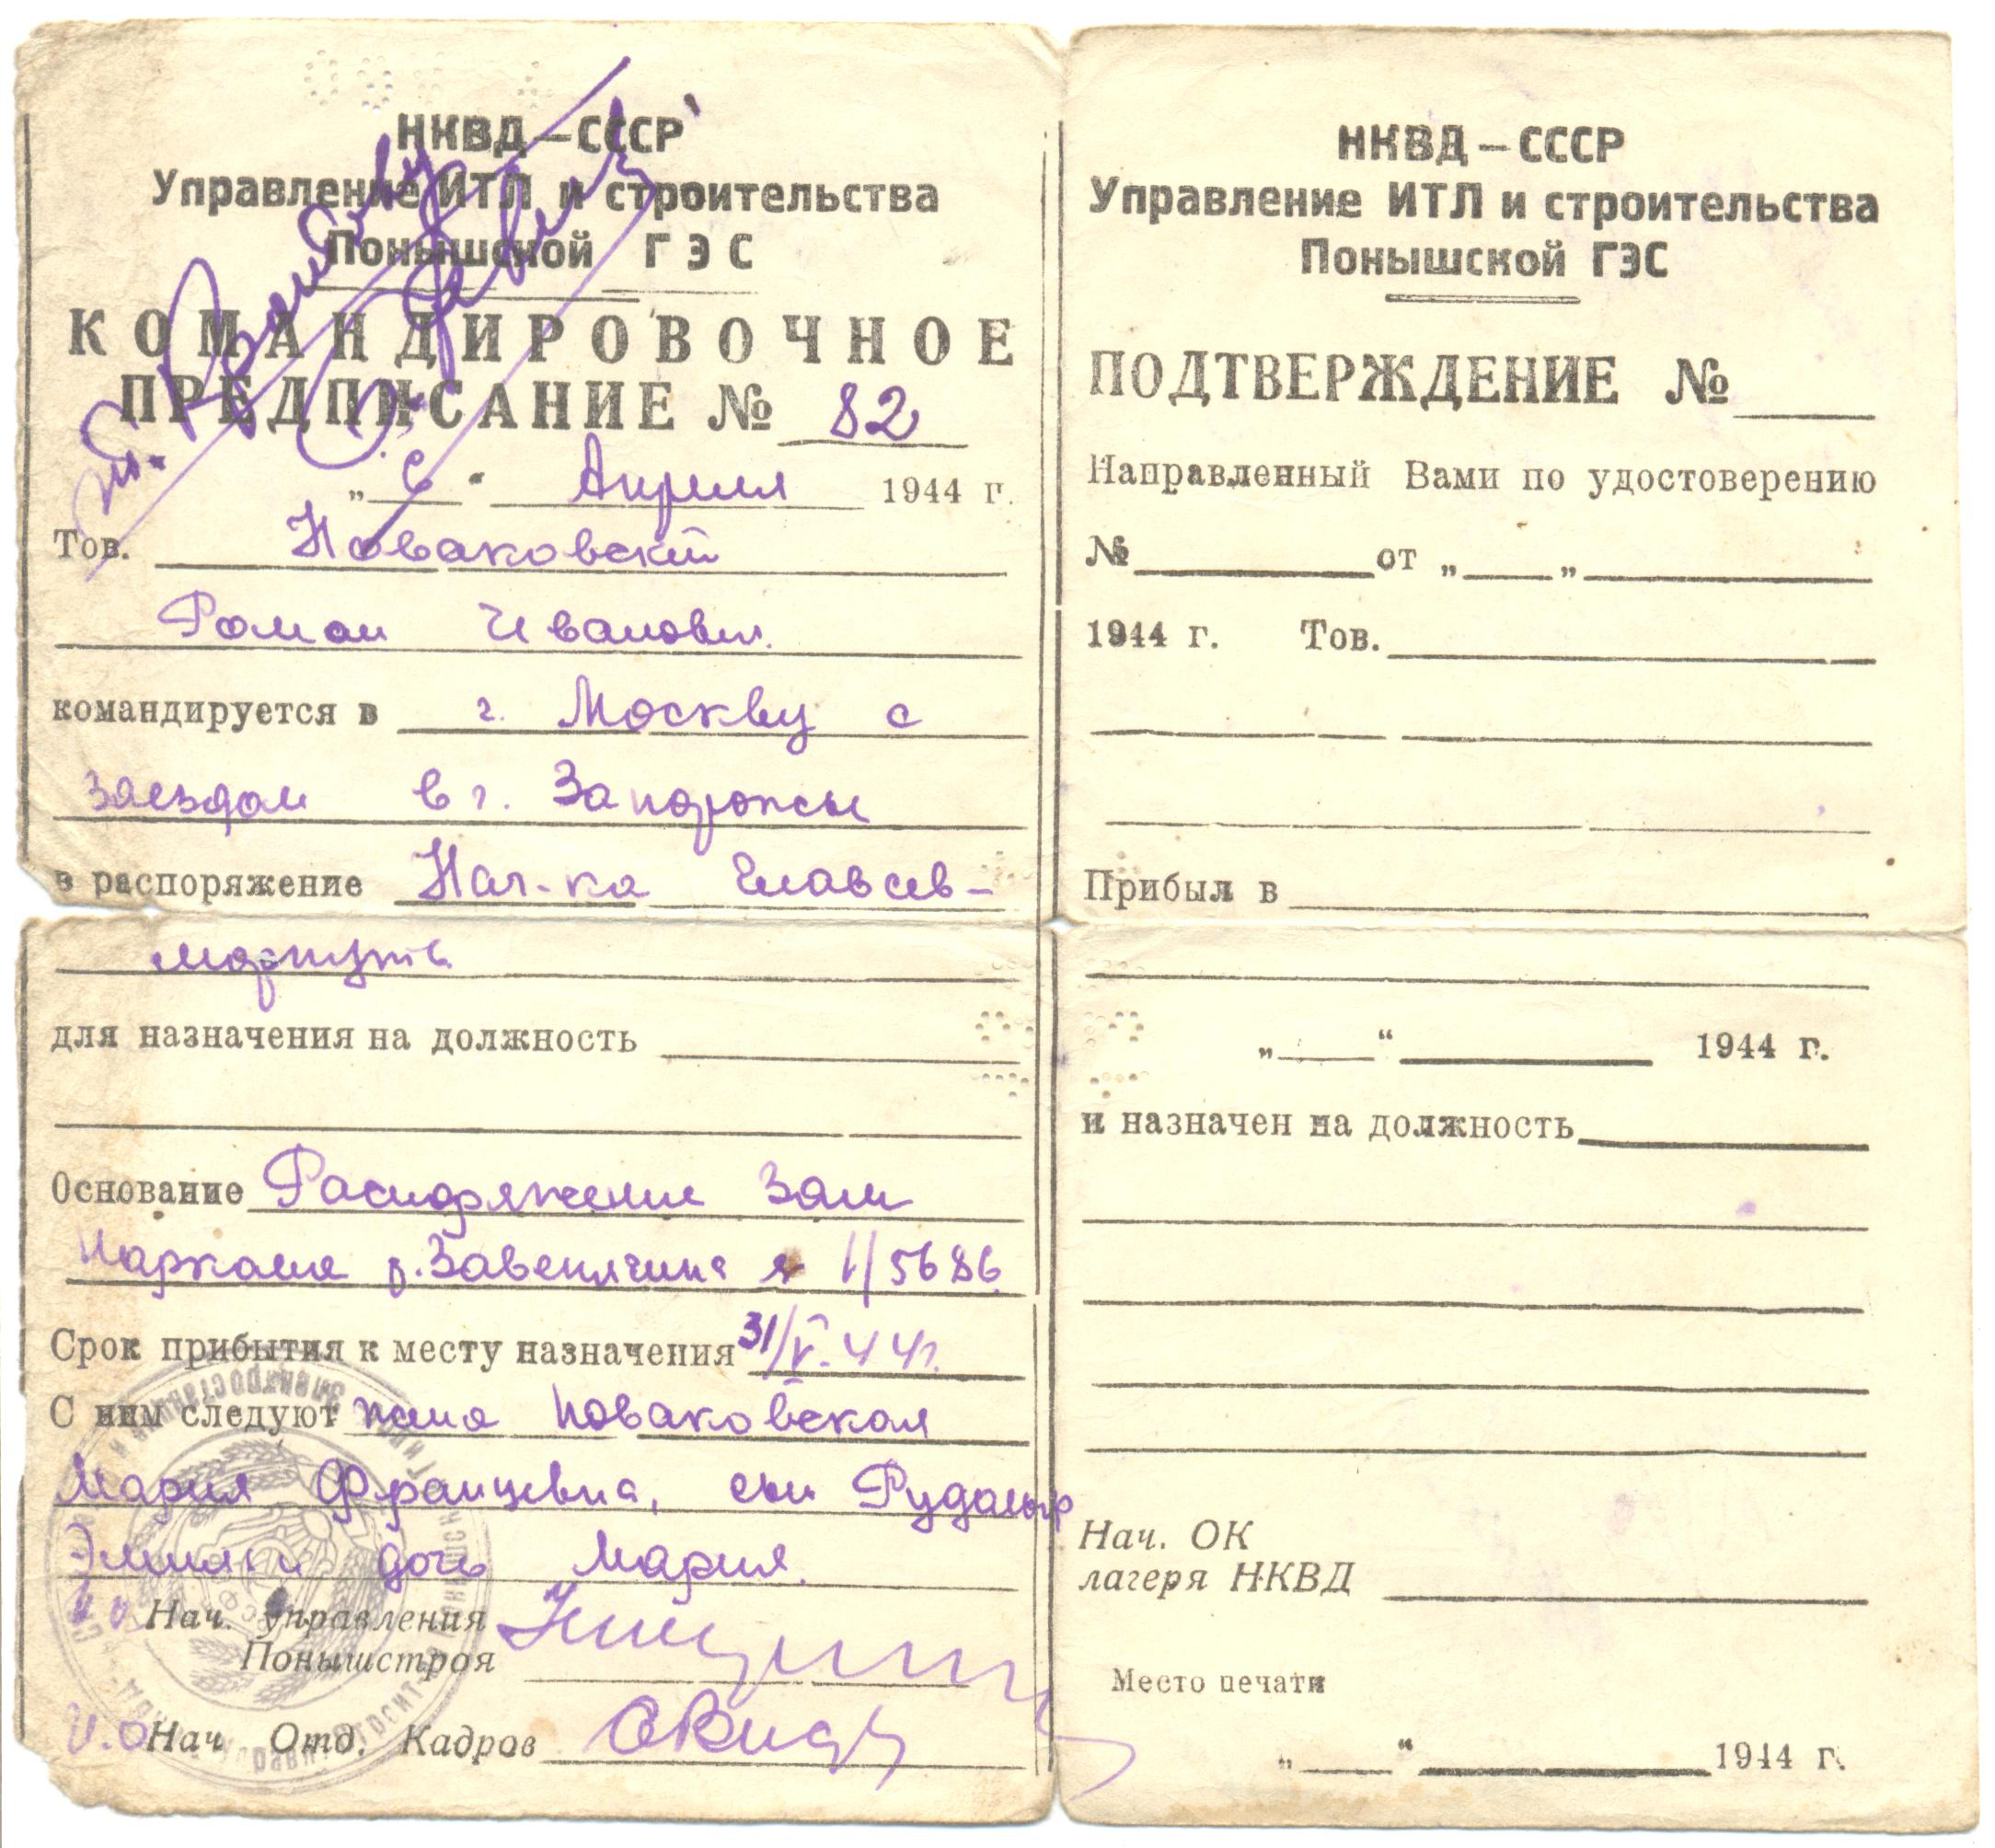 НКВД — СССР
Управление ИТЛ и строительства
Понышской ГЭС
КОМАНДИРОВОЧНОЕ
ПРЕДПИСАНИЕ № 82
„6" Апреля 1944 г.
Тов. Новаковский
Роман Иванович
командируется в г. Москву с
заездом в г. Запорожье
в распоряжение Нач-ка Главсев-
морпути
для назначения на должность
Основание Распоряжение Зам
Наркома т. Завенягина № 1/5686
Срок прибытия к месту назначения 31/V-44г.
С ним следуют жена Новаковская
Мария Францевна, сын
дочь Мария.
Нач. управления
Понышстроя
И.О Нач Отд. Кадров
НКВД — СССР
Управление ИТЛ и строительства
Понышской ГЭС
ПОДТВЕРЖДЕНИЕ №
Направленный Вами по удостоверению
№ от „ "
1944 г. Тов.
Прибыл в
„ " 1944 г.
и назначен на должность
Нач. ОК
лагеря НКВД
Место печати
„ " 1944 г.